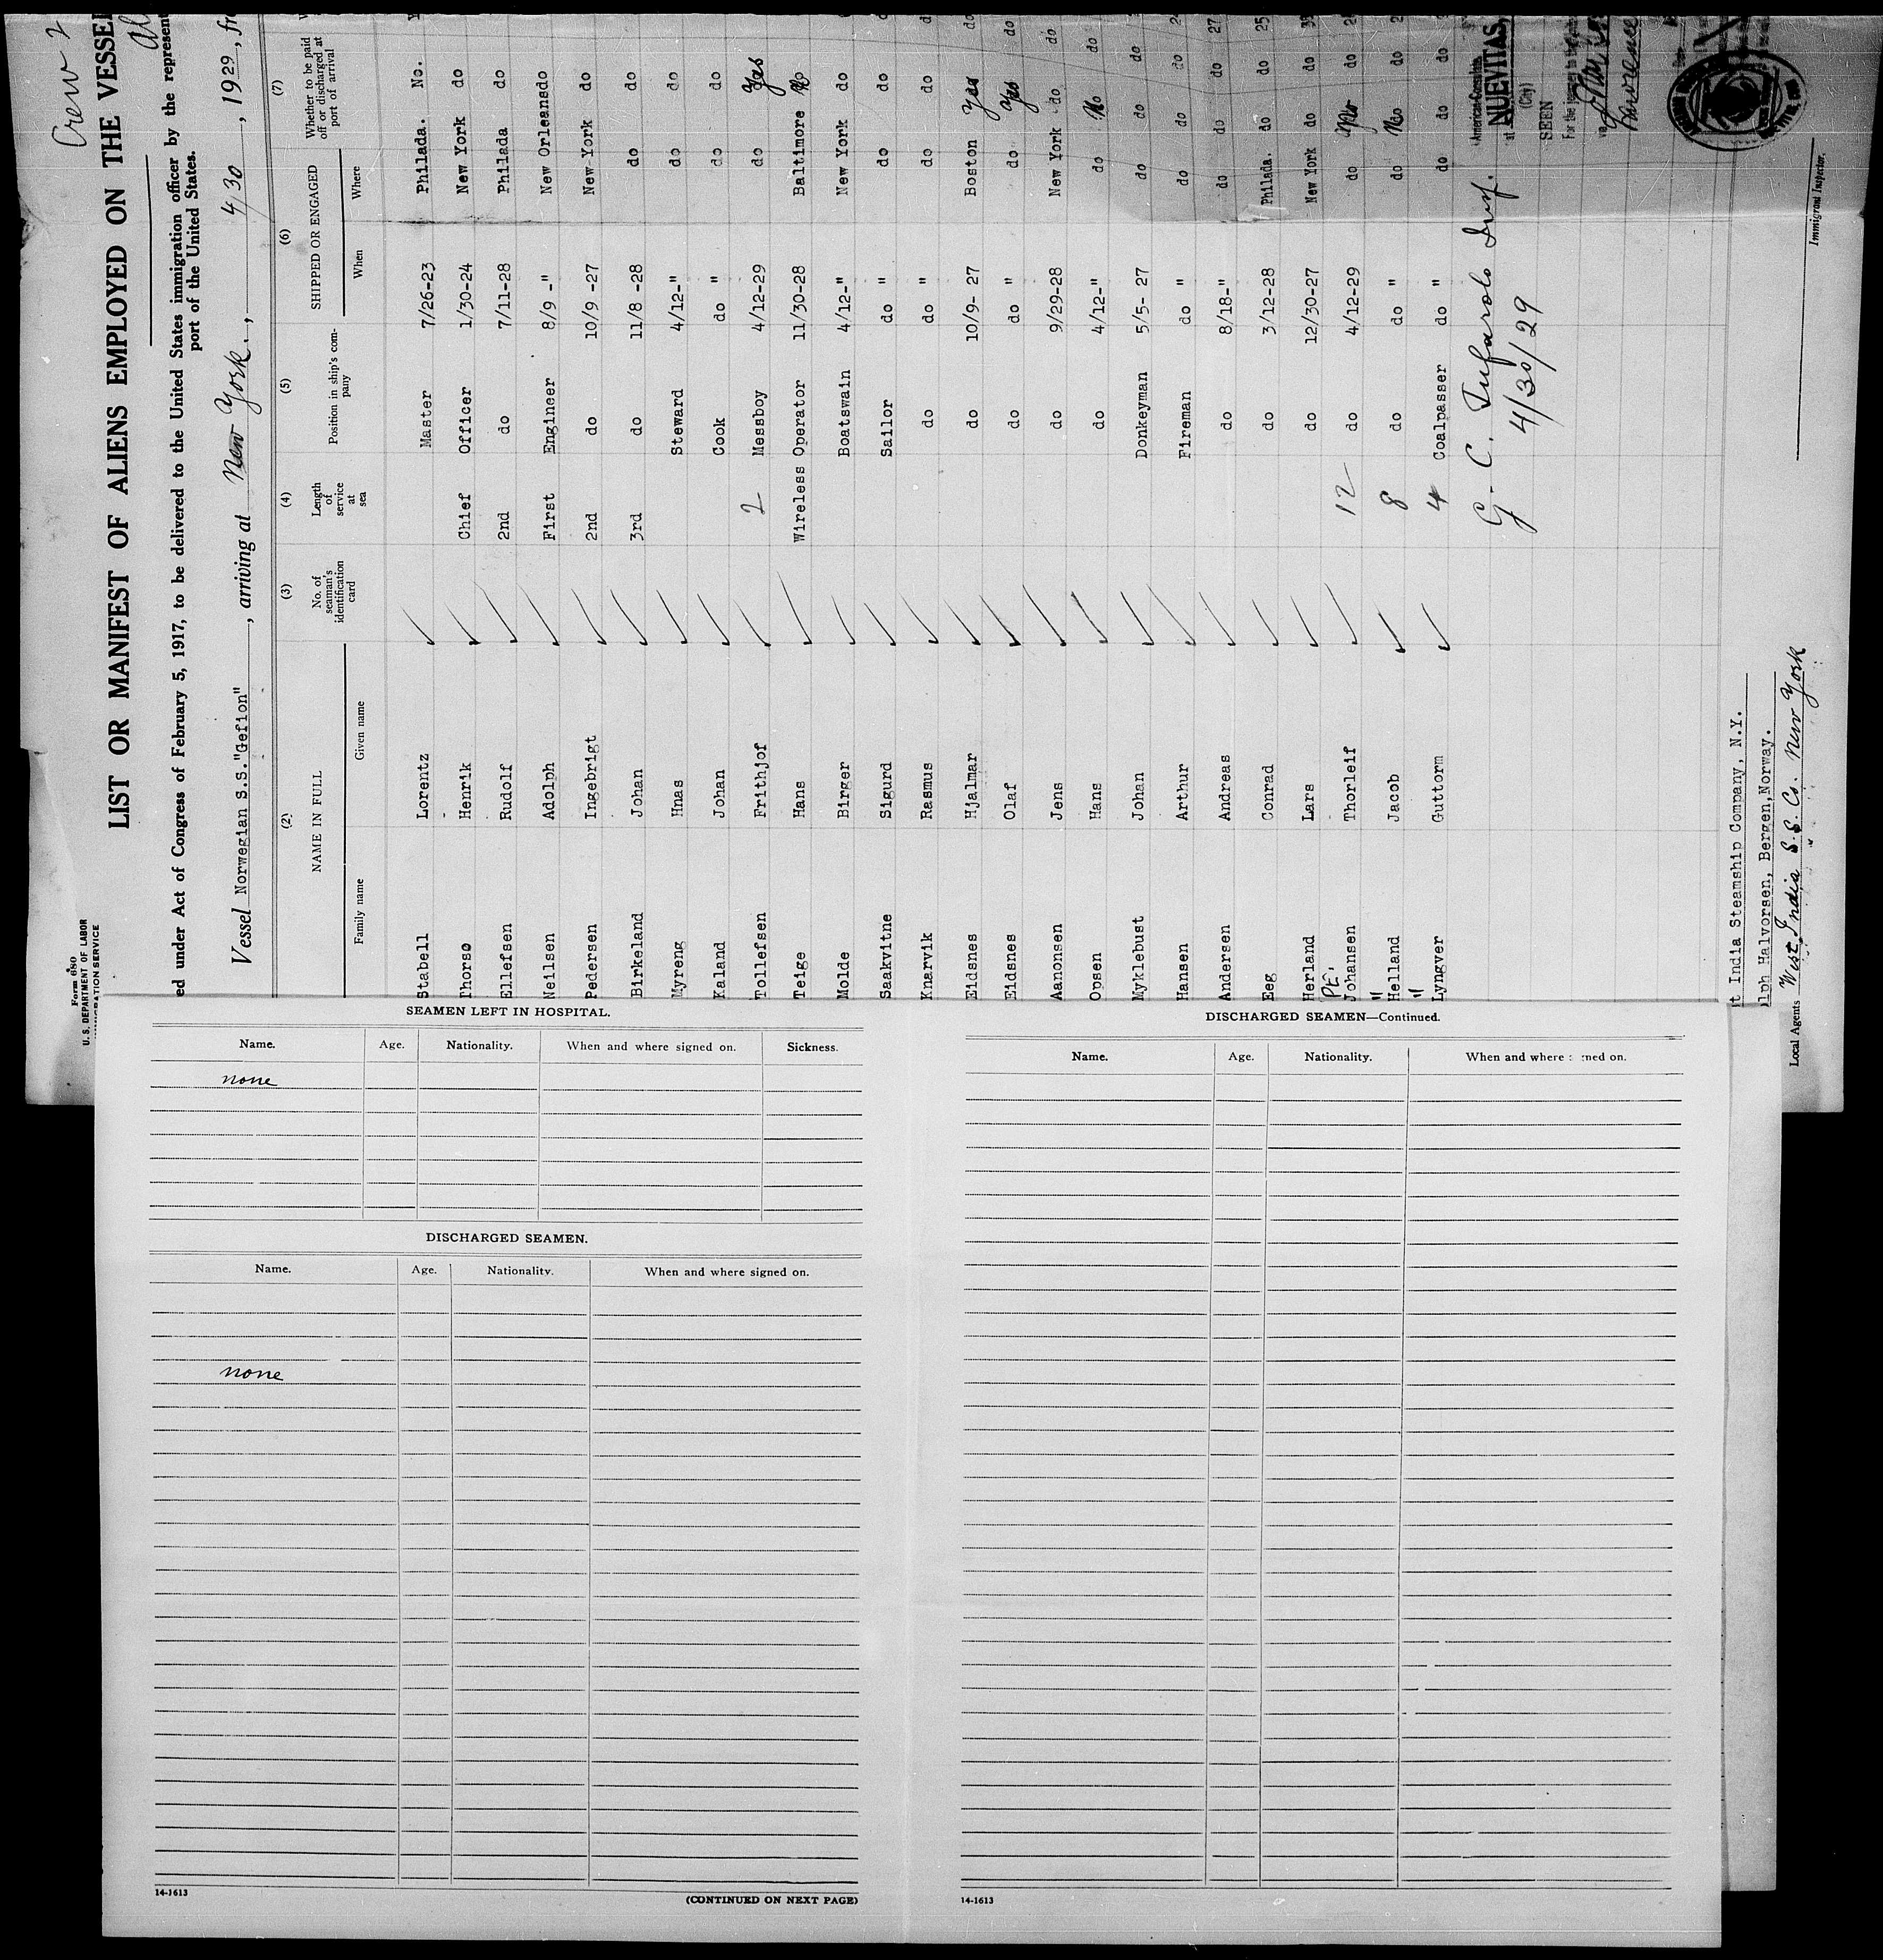 Crew 2
Form 680
U. S. DEPARTMENT OF LABOR
IMMIGRATION SERVICE
LIST OR MANIFEST OF ALIENS EMPLOYED ON THE VESSEL
ed under Act of Congress of February 5, 1917, to be delivered to the United States immigration officer by the represent
port of the United States.
Vessel Norwegian S.S."Gefion", arriving at New York., 4/30, 1929, fr
(2) (3) (4) (5) (6) (7)
NAME IN FULL No. of seaman's identification card Length of service at sea Position in ship's company SHIPPED OR ENGAGED Whether to be paid off or discharged at port of arrival
Family name Given name When Where
Stabell Lorentz Master 7/26-23 Philada. No.
Thorsø Henrik Chief Officer 1/30-24 New York do
Ellefsen Rudolf 2nd do 7/11-28 Philada do
Neilsen Adolph First Engineer 8/9 -" New Orleansdo
Pedersen Ingebrigt 2nd do 10/9 -27 New York do
Birkeland Johan 3rd do 11/8 -28 do do
Myreng Hnas Steward 4/12-" do do
Kaland Johan Cook do " do do
Tollefsen Frithjof 2 Messboy 4/12-29 do Yes do
Teige Hans Wireless Operator 11/30-28 Baltimore No
Molde Birger Boatswain 4/12-" New York do
Saakvitne Sigurd Sailor do " do do
Knarvik Rasmus do do " do do
Eidsnes Hjalmar do 10/9- 27 Boston Yes do
Eidsnes Olaf do do " do Yes do
Aanonsen Jens do 9/29-28 New York do do
Opsen Hans do 4/12-" do No do
Myklebust Johan Donkeyman 5/5- 27 do do do
Hansen Arthur Fireman do " do do do
Andersen Andreas do 8/18-" do do do 27
Eeg Conrad do 3/12-28 Philada. do do 25
Herland Lars do 12/30-27 New York do do
P.E. Johansen Thorleif 12 do 4/12-29 do No do
" Helland Jacob 8 do do " do No do
" Lyngver Guttorm 4 Coalpasser do " do do do
G. C. Tufarolo Insp.
4/30/29
American Consulate
at NUEVITAS,
(City)
SEEN
Immigrant Inspector.
t India Steamship Company, N.Y.
lph Halvorsen, Bergen,Norway.
Local Agents West India S.S. Co. New York
SEAMEN LEFT IN HOSPITAL.
Name. Age. Nationality. When and where signed on. Sickness.
none
DISCHARGED SEAMEN.
Name. Age. Nationality. When and where signed on.
none
14-1613
(CONTINUED ON NEXT PAGE)
DISCHARGED SEAMEN—Continued.
Name. Age. Nationality. When and where : :ned on.
14-1613